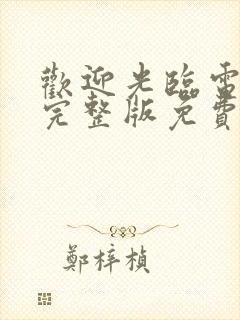 歡迎光臨電
完整版免費
鄭梓楨